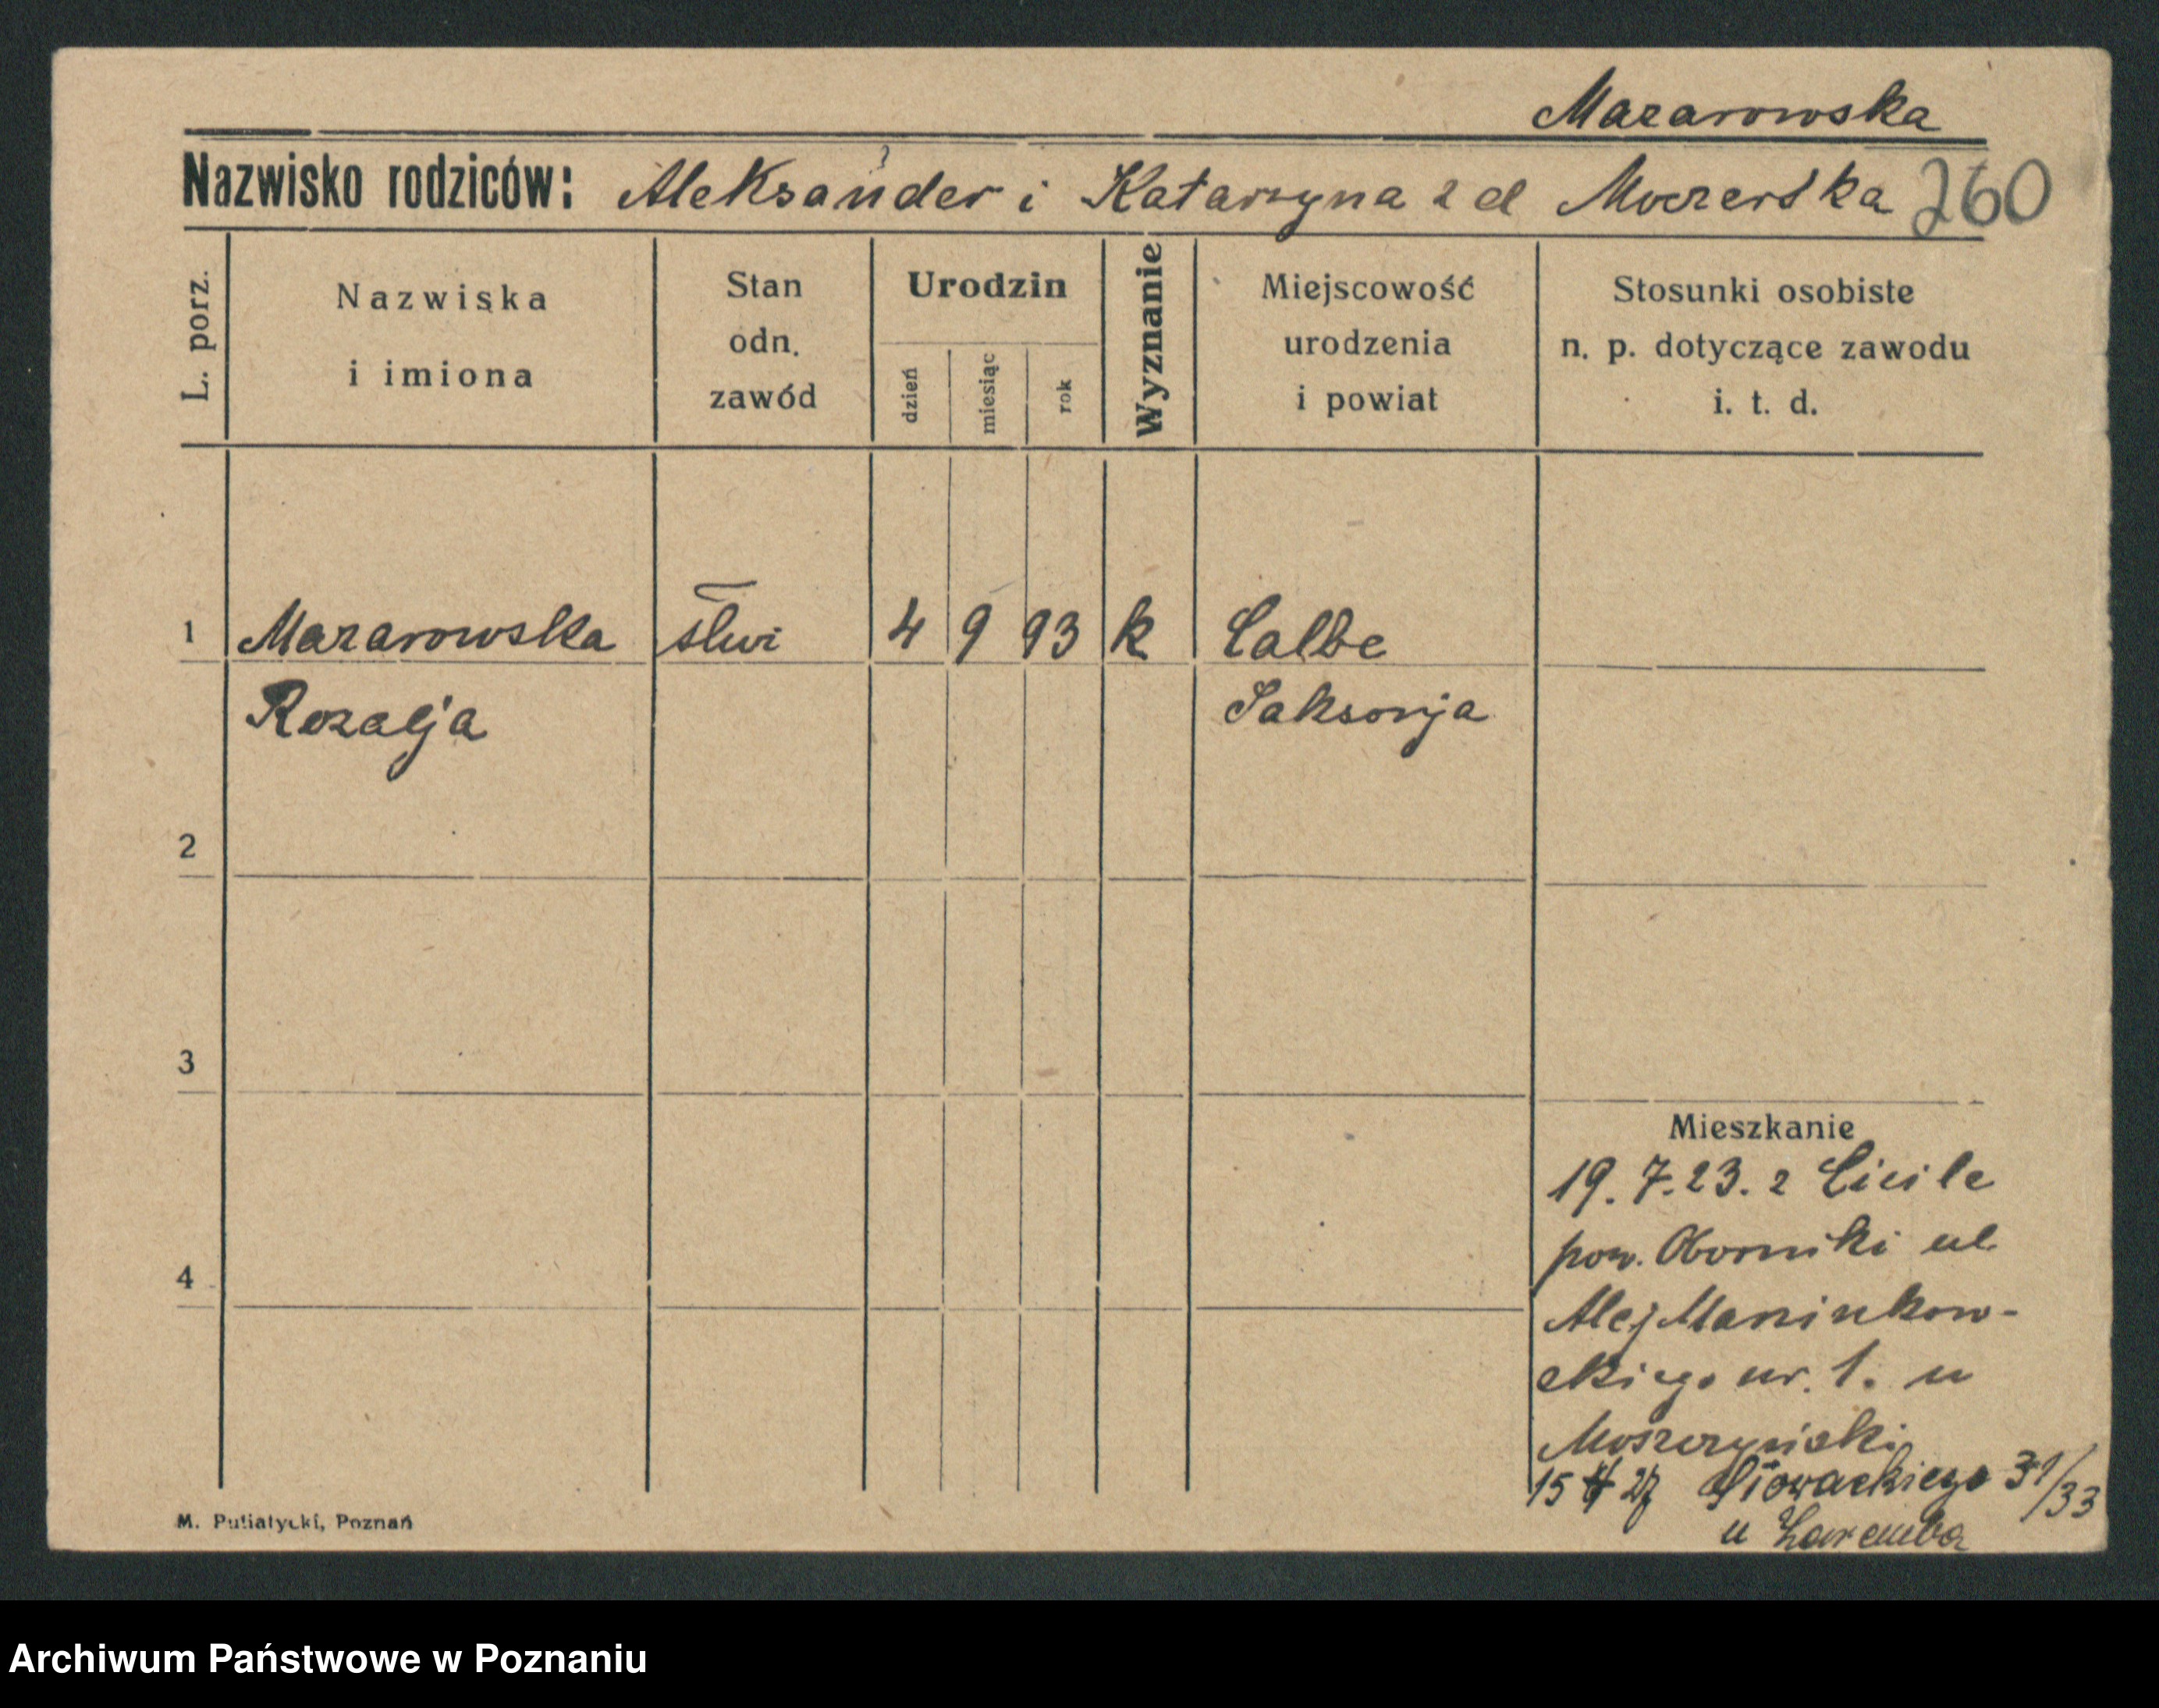 Mazarowska
Nazwisko rodziców: Aleksander i Katarzyna z d 260
L. porz.
Nazwiska
i imiona
Stan
odn.
zawód
Urodzin
dzień
miesiąc
rok
Wyznanie
Miejscowość
urodzenia
i powiat
Stosunki osobiste
n. p. dotyczące zawodu
i. t. d.
1 Mazarowska 4 9 93 k Calbe
Rozalja Saksonja
2
3
4
Mieszkanie
19. 7. 23. z
pow. Oborniki ul.
Alej Marcinkow-
skiego nr. 1. u
15 27 Słowackiego 31/33
u Zaremba
M. Putiatycki, Poznań
Archiwum Państwowe w Poznaniu